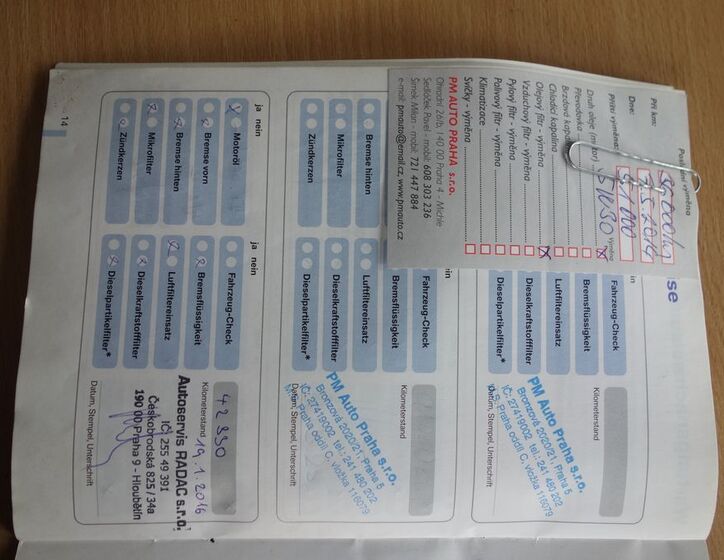 Poslední výměna
Při km:
Dne:
Příští výměna:
Druh oleje
5W30
Výměna
Převodovka
Brzdová kapalina
Chladící kapalina
Olejový filtr - výměna
Vzduchový filtr - výměna
Pylový filtr - výměna
Palivový filtr - výměna
Klimatizace
Svíčky - výměna
PM AUTO PRAHA s.r.o.
Ohradní 26/b, 140 00 Praha 4 - Michle
Sedláček Pavel - mobil: 608 303 236
Šimek Milan - mobil: 721 447 884
e-mail: pmauto@email.cz, www.pmauto.cz
Fahrzeug-Check
Bremsflüssigkeit
Luftfiltereinsatz
Dieselkraftstofffilter
Dieselpartikelfilter*
Kilometerstand
PM Auto Praha s.r.o.
Bronzová 2020/21, Praha 5
IČ: 27419002, tel.: 241 480 202
Praha oddíl C, vložka 116079
Datum, Stempel, Unterschrift
Bremse hinten
Mikrofilter
Zündkerzen
Fahrzeug-Check
Bremsflüssigkeit
Luftfiltereinsatz
Dieselkraftstofffilter
Dieselpartikelfilter*
Kilometerstand
PM Auto Praha s.r.o.
Bronzová 2020/21, Praha 5
IČ: 27419002, tel.: 241 480 202
Praha oddíl C, vložka 116079
Datum, Stempel, Unterschrift
ja nein
Motoröl
Bremse vorn
Bremse hinten
Mikrofilter
Zündkerzen
ja nein
Fahrzeug-Check
Bremsflüssigkeit
Luftfiltereinsatz
Dieselkraftstofffilter
Dieselpartikelfilter*
Kilometerstand
42 330
19.1.2016
Autoservis RADAC s.r.o.
IČ 255 49 391
Českobrodská 825 / 34a
190 00 Praha 9 - Hloubětín
Datum, Stempel, Unterschrift
14